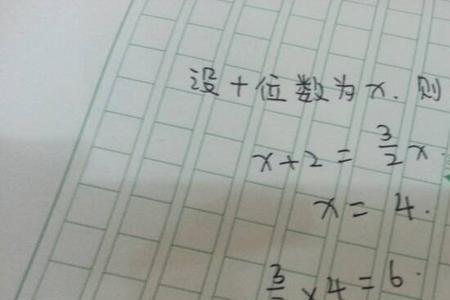 设十位数为x.则
x+2=3/2x.
x=4.
3/2×4=6.